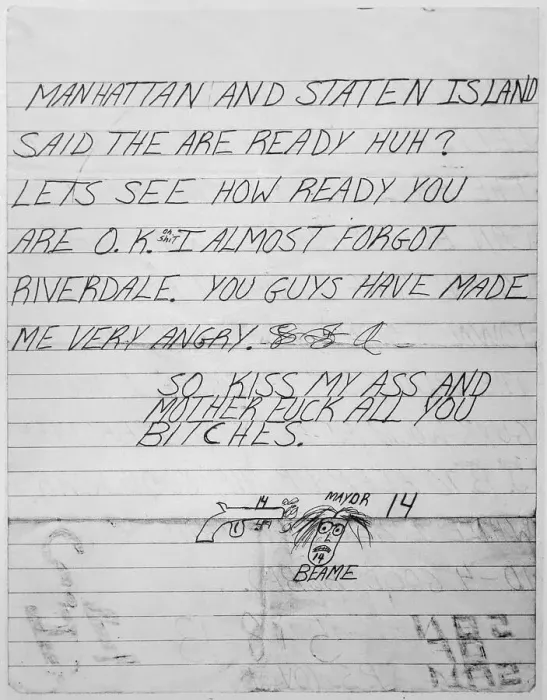 MANHATTAN AND STATEN ISLAND
SAID THE ARE READY HUH?
LETS SEE HOW READY YOU
ARE O.K. oh shit I ALMOST FORGOT
RIVERDALE. YOU GUYS HAVE MADE
ME VERY ANGRY.
SO KISS MY ASS AND
MOTHER FUCK ALL YOU
BITCHES.
14
MAYOR 14
14
BEAME